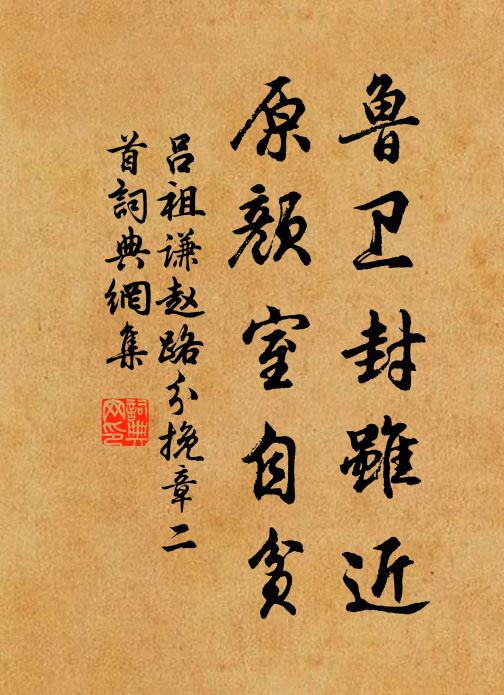 鲁卫封虽近
原颜室自贫
吕祖谦赵路分挽章二
首詞典網集
詞典網印